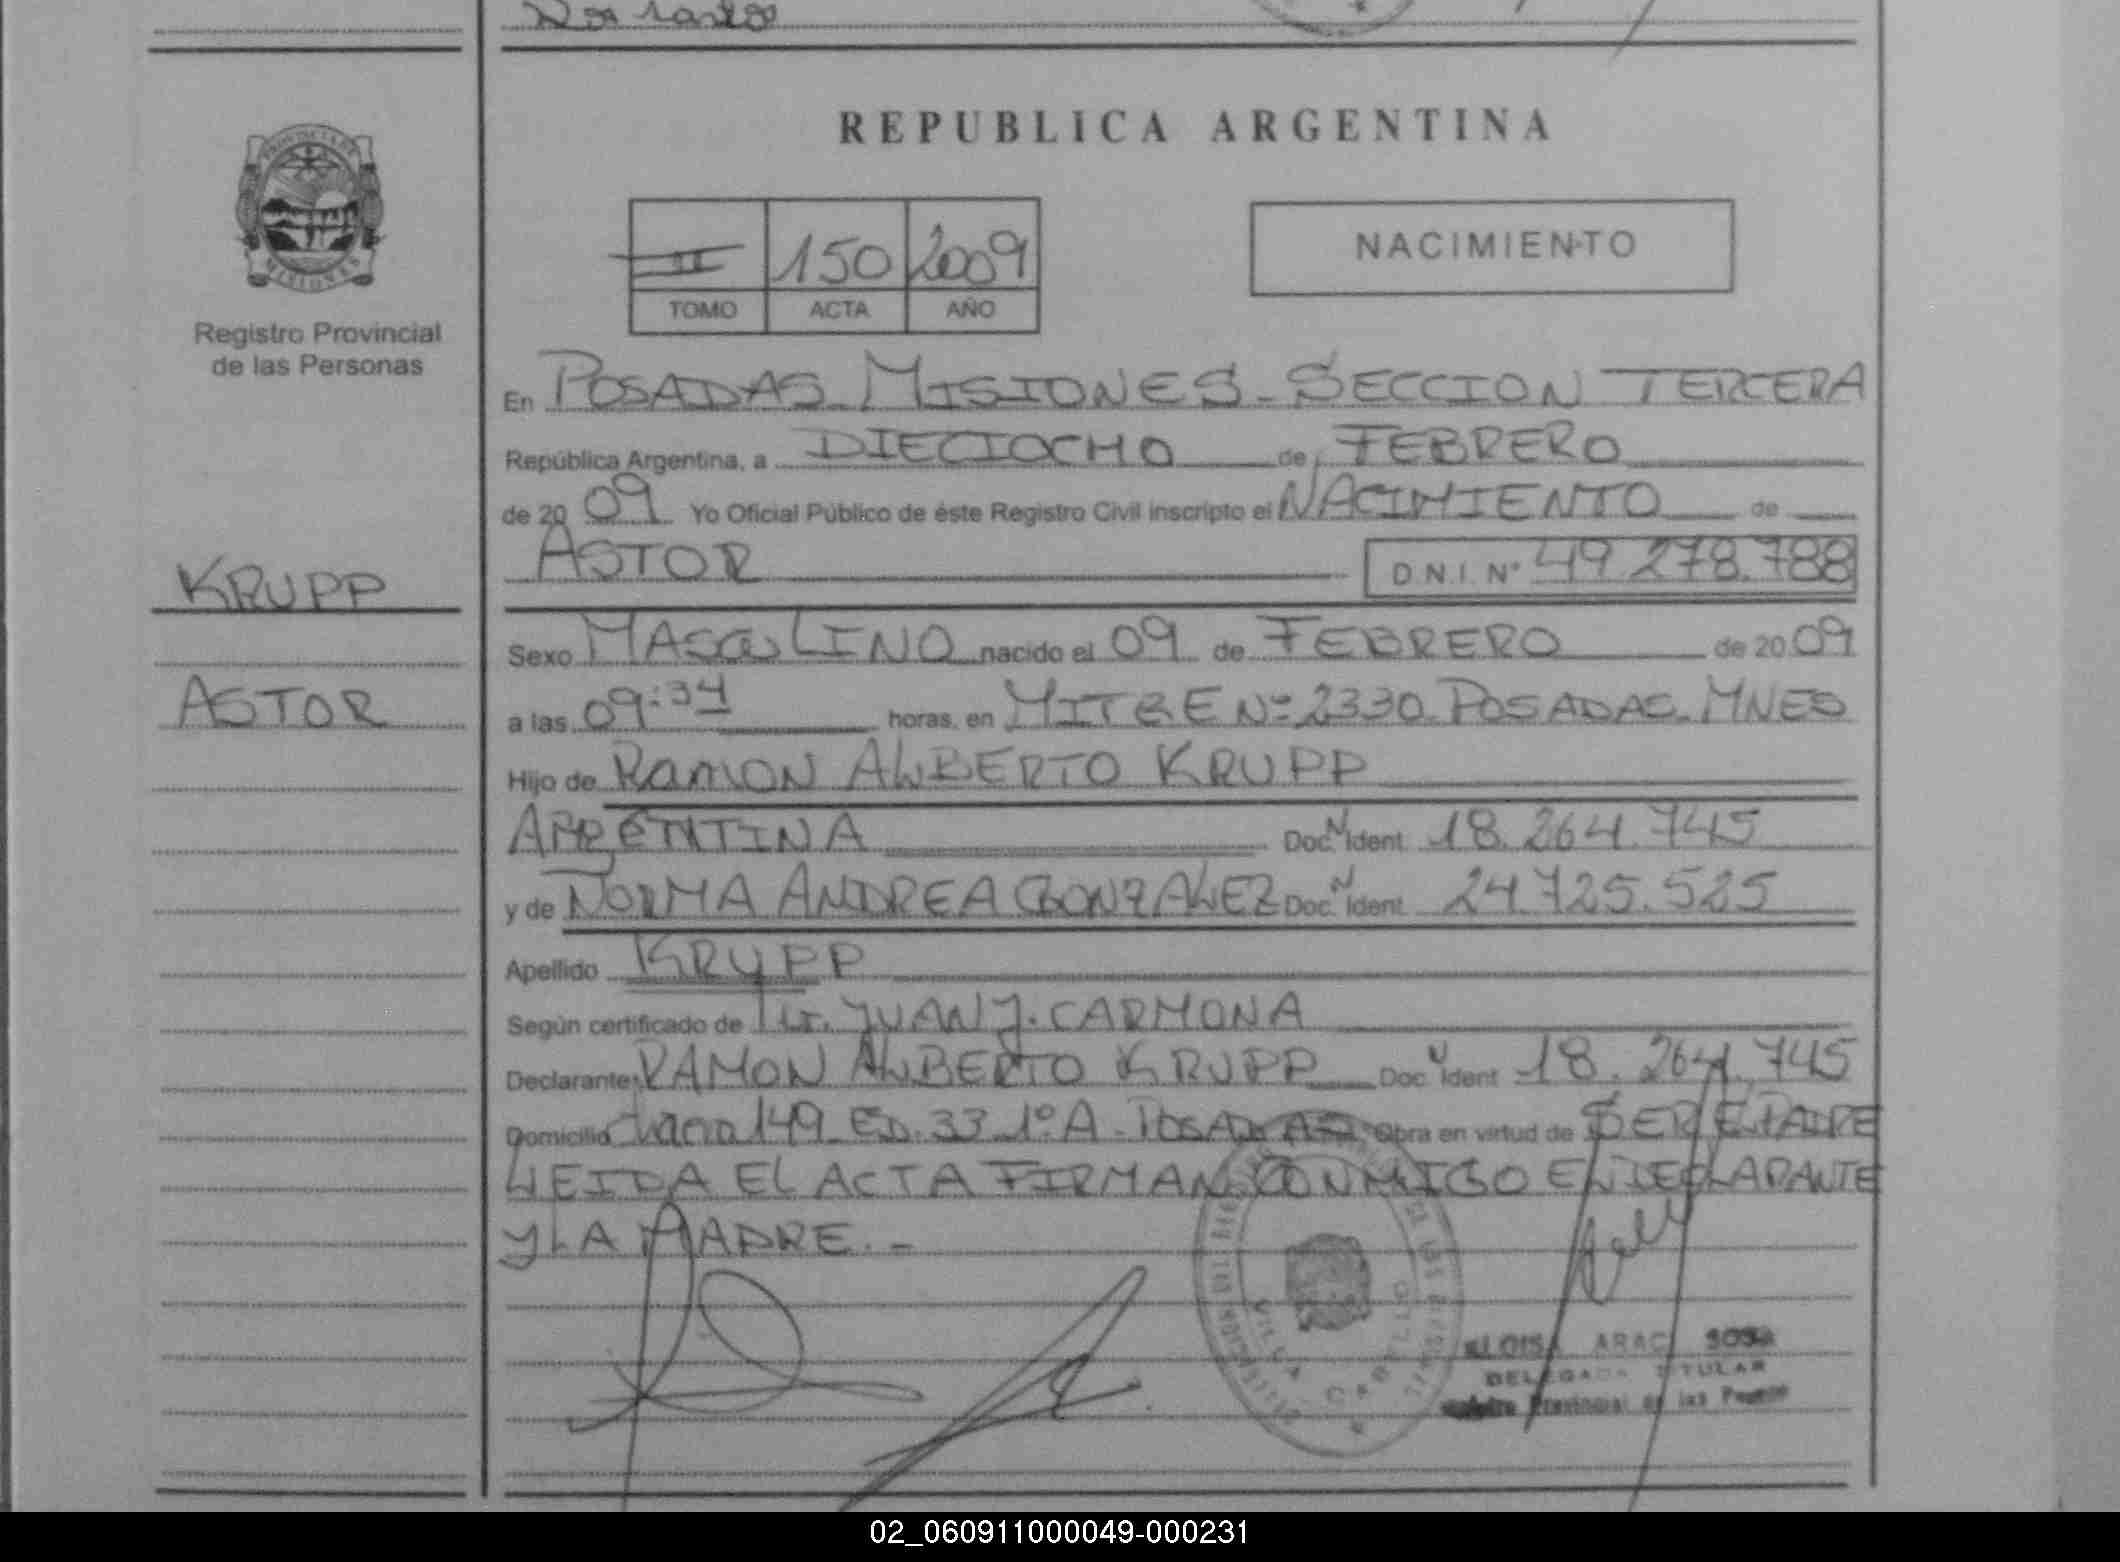 REPUBLICA ARGENTINA
PROVINCIA DE
MISIONES
Registro Provincial
de las Personas
II 150 2009
TOMO ACTA AÑO
NACIMIENTO
En POSADAS - MISIONES - SECCION TERCERA
República Argentina, a DIECIOCHO de FEBRERO
de 2009 Yo Oficial Público de éste Registro Civil inscripto el NACIMIENTO de
ASTOR D.N.I. Nº 49.278.788
KRUPP
Sexo MASCULINO nacido el 09 de FEBRERO de 2009
ASTOR
a las 09:34 horas, en MITRE Nº 2330 POSADAS - MNES
Hijo de RAMON ALBERTO KRUPP
ARGENTINA Doc. N Ident. 18.264.745
y de NORMA ANDREA GONZALEZ Doc. N Ident. 24.725.525
Apellido KRUPP
Según certificado de JUAN J. CARMONA
Declarante RAMON ALBERTO KRUPP Doc. N Ident. 18.264.745
Domicilio Chacra 149 ED. 33 1º A - POSADAS Obra en virtud de SER EL PADRE
LEIDA EL ACTA FIRMAN CONMIGO EL DECLARANTE
Y LA MADRE.-
VILLA CABELLO
ELOISA ARAC SOSA
DELEGADA TITULAR
Provincial de las Personas
02_060911000049-000231